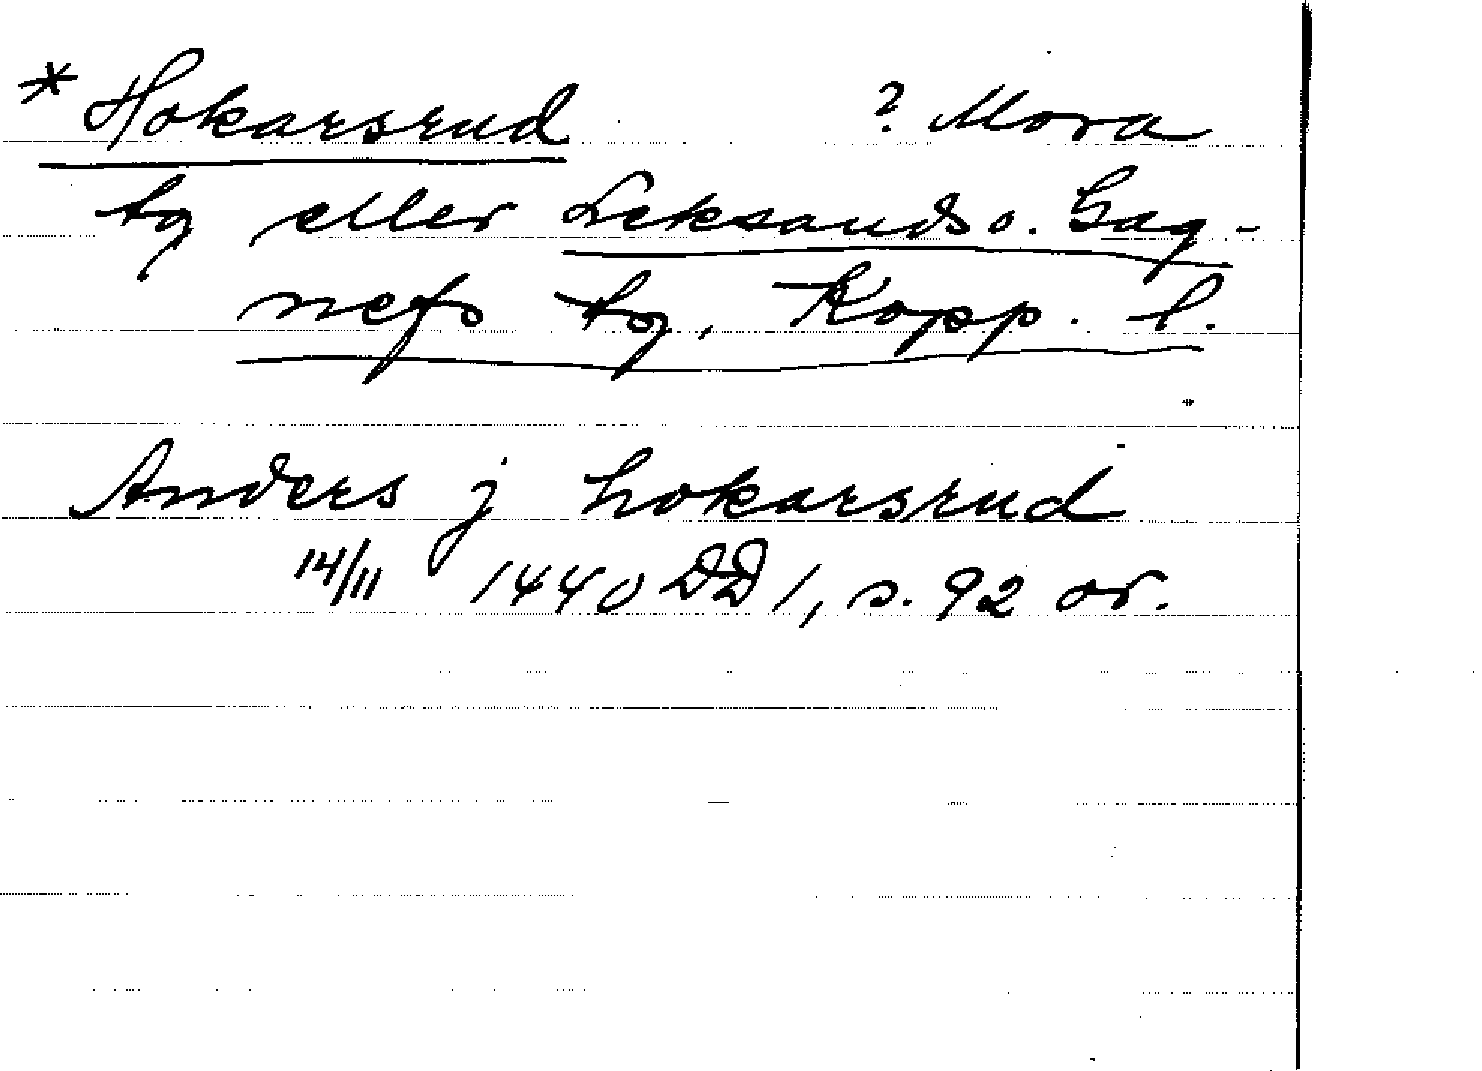 * Hokarsrud ? Mora
tg eller Leksands o. Gag-
nefs tg, Kopp. l.
Anders j hokarsrud
14/11 1440 DD 1, s. 92 or.